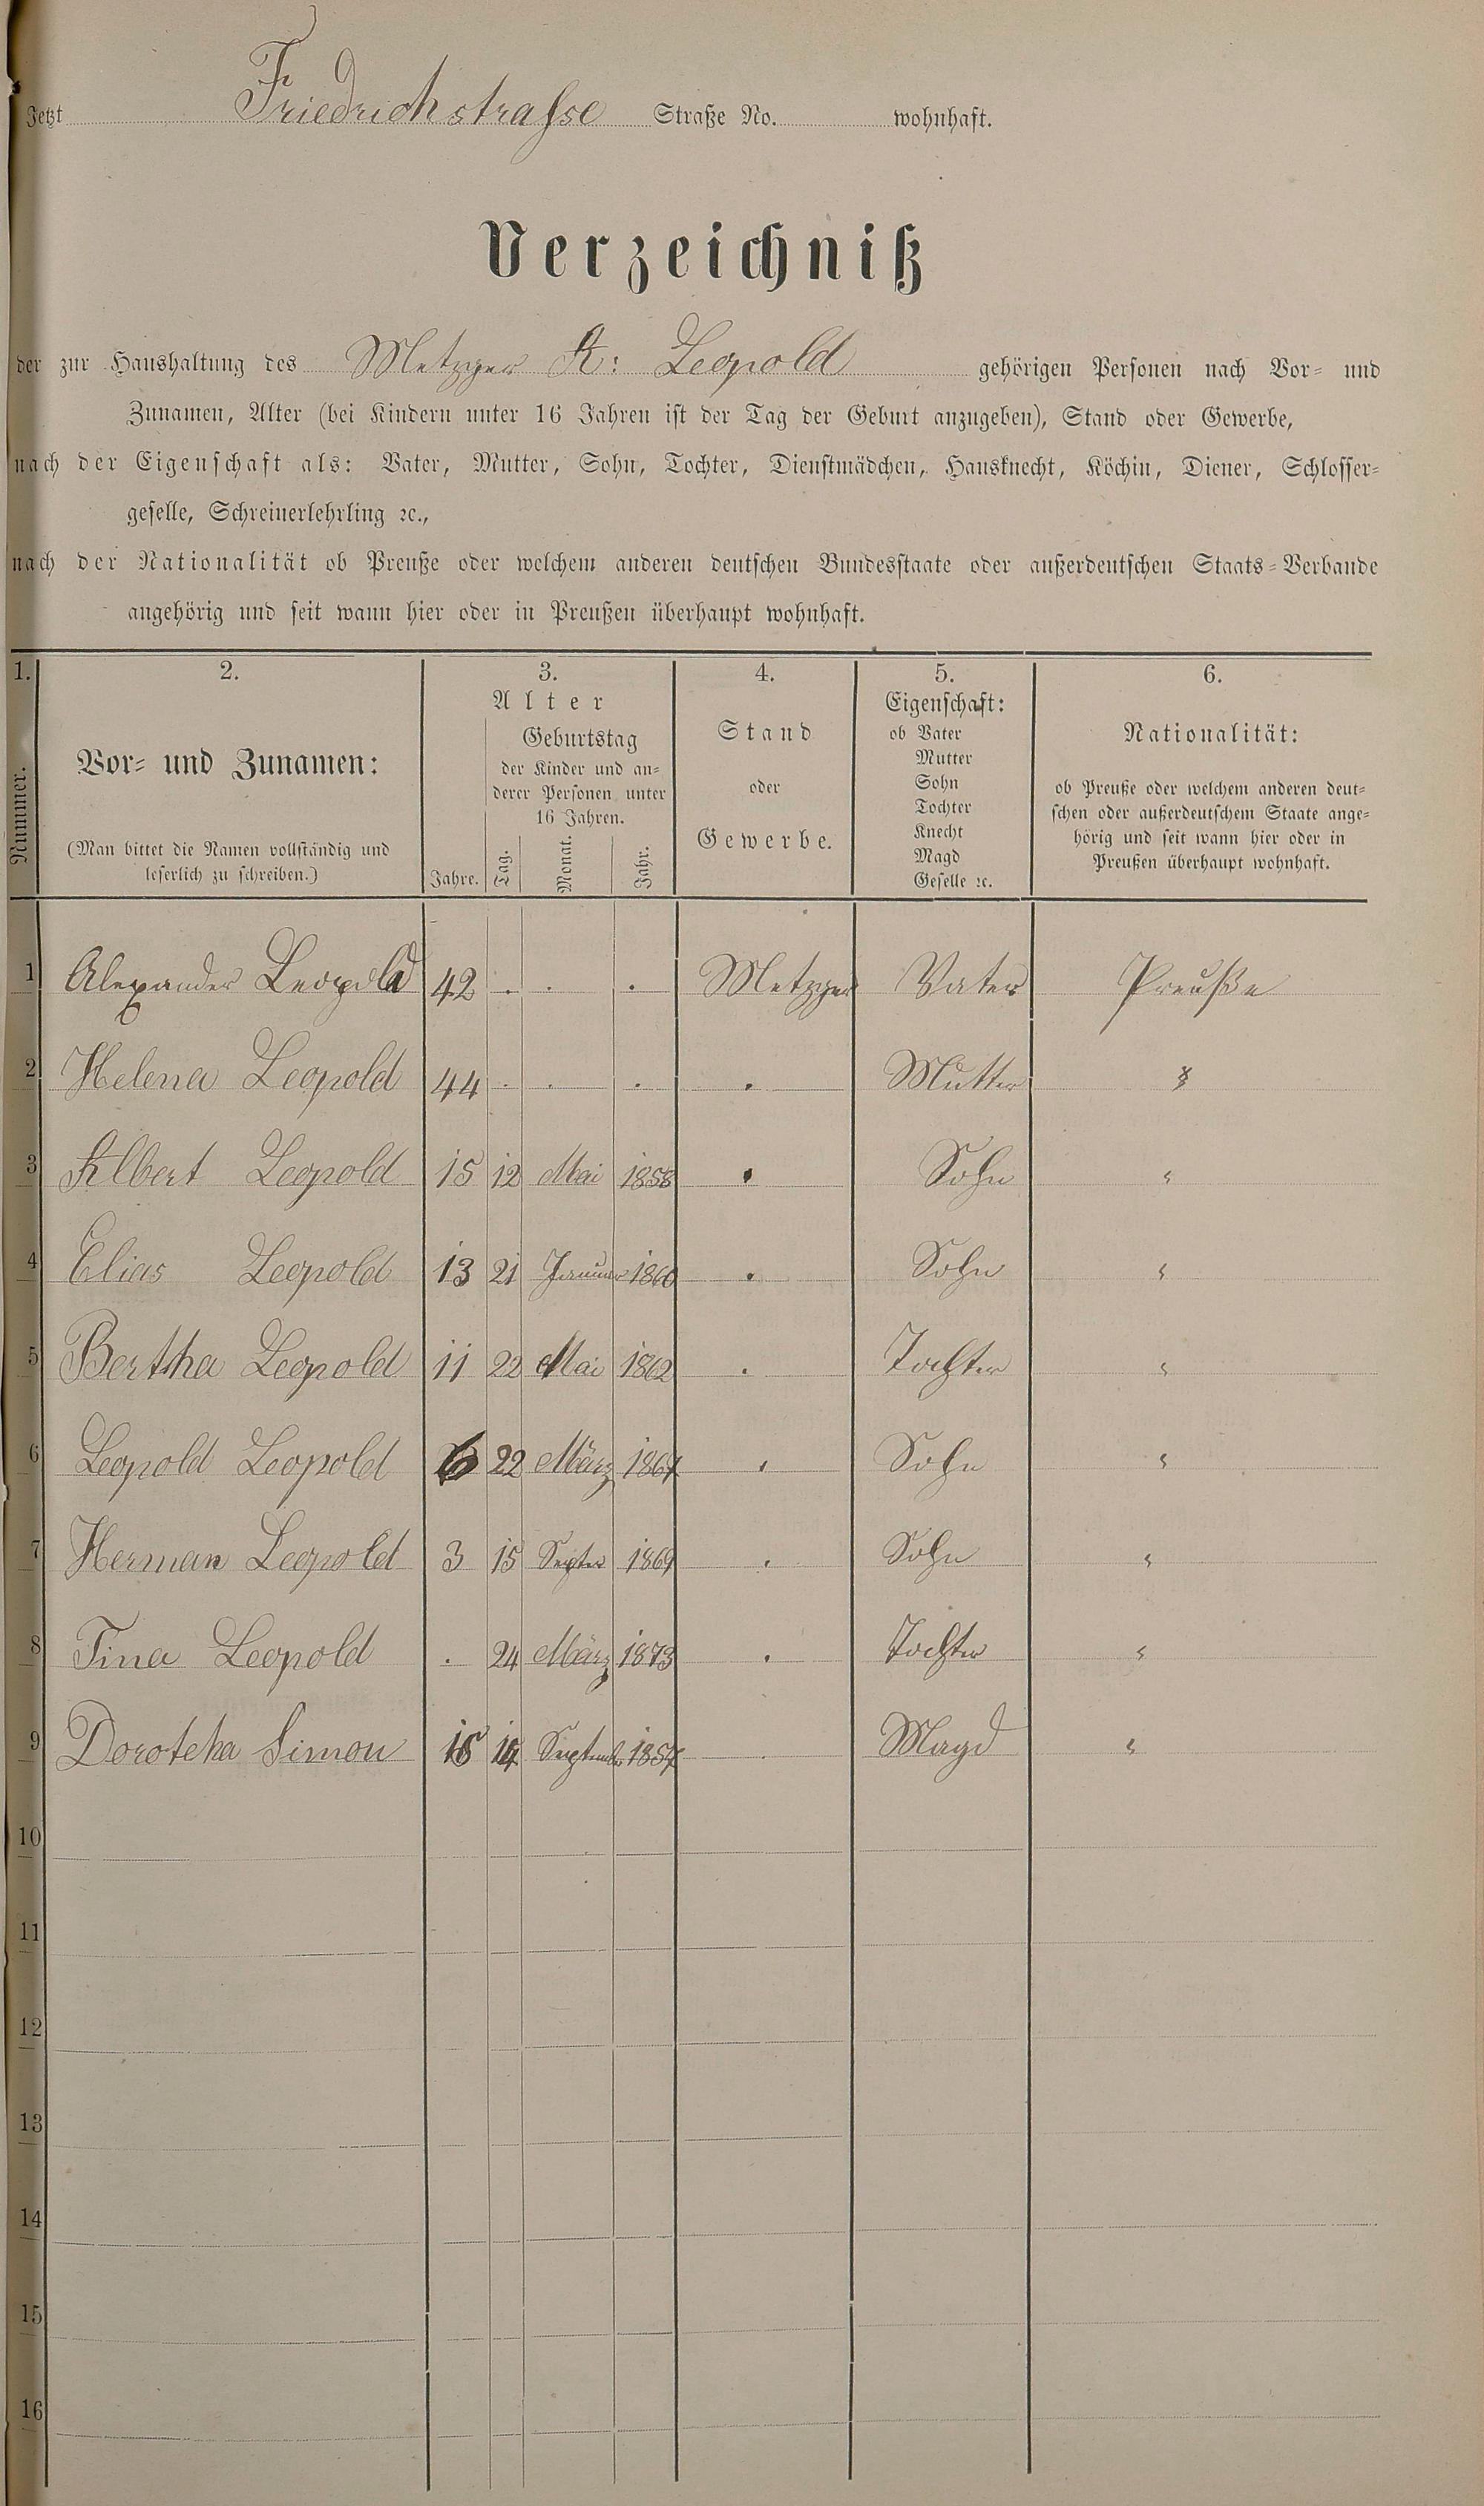 Jetzt Friedrichstraſse Straße No. wohnhaft.
Verzeichniß
der zur Haushaltung des Metzger A: Leopold gehörigen Personen nach Vor- und
Zunamen, Alter (bei Kindern unter 16 Jahren ist der Tag der Geburt anzugeben), Stand oder Gewerbe,
nach der Eigenschaft als: Vater, Mutter, Sohn, Tochter, Dienstmädchen, Hausknecht, Köchin, Diener, Schlosser-
geselle, Schreinerlehrling ꝛc.,
nach der Nationalität ob Preuße oder welchem anderen deutschen Bundesstaate oder außerdeutschen Staats-Verbande
angehörig und seit wann hier oder in Preußen überhaupt wohnhaft.
1. 2. 3. 4. 5. 6.
Nummer.
Vor- und Zunamen:
(Man bittet die Namen vollständig und
leserlich zu schreiben.)
Alter
Jahre.
Geburtstag
der Kinder und an-
derer Personen unter
16 Jahren.
Tag. Monat. Jahr.
Stand
oder
Gewerbe.
Eigenschaft:
ob Vater
Mutter
Sohn
Tochter
Knecht
Magd
Geselle ꝛc.
Nationalität:
ob Preuße oder welchem anderen deut-
schen oder außerdeutschem Staate ange-
hörig und seit wann hier oder in
Preußen überhaupt wohnhaft.
1 Alexander Leopold 42 . . . Metzger Vater Preuße
2 Helena Leopold 44 . . . . Mutter "
3 Albert Leopold 15 12 Mai 1858 . Sohn "
4 Elias Leopold 13 21 Januar 1860 . Sohn "
5 Bertha Leopold 11 22 Mai 1862 . Tochter "
6 Leopold Leopold 6 22 März 1867 . Sohn "
7 Herman Leopold 3 15 Septer 1869 . Sohn "
8 Tina Leopold . 24 März 1873 . Tochter "
9 Doroteha Simon September 1857 . Magd "
10
11
12
13
14
15
16